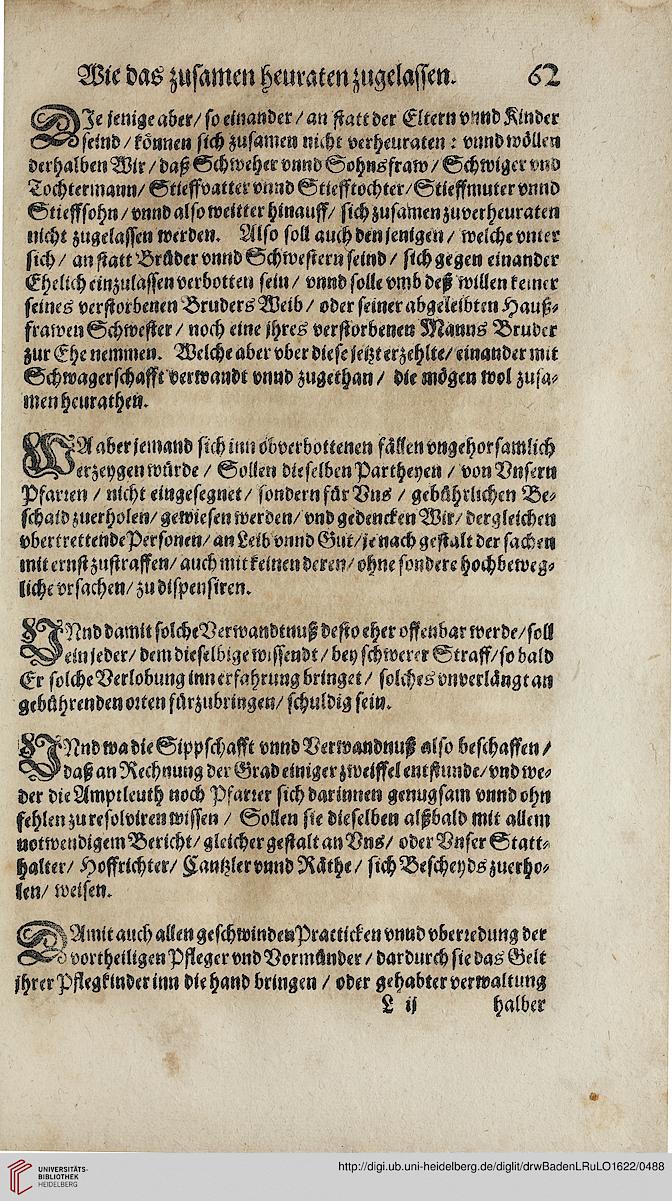 Wie das zusamen heuraten zugelassen. 62
DIe jenige aber / so einander / an statt der Eltern vnnd Kinder
seind / können sich zusamen nicht verheuraten : vnnd wöllen
derhalben Wir / daß Schweher vnnd Sohnsfraw / Schwiger vnd
Tochtermann / Stieffvatter vnnd Stiefftochter / Stieffmuter vnnd
Stieffsohn / vnnd also weitter hinauff / sich zusamen zuverheuraten
nicht zugelassen werden. Also soll auch den jenigen / welche vnter
sich / an statt Brüder vnnd Schwestern seind / sich gegen einander
Ehelich einzulassen verbotten sein / vnnd solle vmb deß willen keiner
seines verstorbenen Bruders Weib / oder seiner abgeleibten Hauß⸗
frawen Schwester / noch eine jhres verstorbenen Manns Bruder
zur Ehe nemmen. Welche aber vber diese jetzt erzehlte / einander mit
Schwagerschafft verwandt vnnd zugethan / die mögen wol zusa⸗
men heurathen.
WA aber jemand sich inn obverbottenen fällen vngehorsamlich
erzeygen würde / Sollen dieselben Partheyen / von Vnsern
Pfarren / nicht eingesegnet / sondern für Vns / gebührlichen Be⸗
schaid zuerholen / gewiesen werden / vnd gedencken Wir / dergleichen
vbertrettende Personen / an Leib vnnd Gut / je nach gestalt der sachen
mit ernst zustraffen / auch mit keinen deren / ohne sondere hochbeweg⸗
liche vrsachen / zu dispensiren.
VNnd damit solche Verwandtnuß desto eher offenbar werde / soll
ein jeder / dem dieselbige wissendt / bey schwerer Straff / so bald
Er solche Verlobung inn erfahrung bringet / solches vnverlängt an
gebührenden orten fürzubringen / schuldig sein.
VNnd wa die Sippschafft vnnd Verwandnuß also beschaffen /
daß an Rechnung der Grad einiger zweiffel entstunde / vnd we⸗
der die Amptleuth noch Pfarrer sich darinnen genugsam vnnd ohn
fehlen zu resolviren wissen / Sollen sie dieselben alßbald mit allem
notwendigem Bericht / gleicher gestalt an Vns / oder Vnser Statt⸗
halter / Hoffrichter / Cantzler vnnd Räthe / sich Bescheyds zuerho⸗
len / weisen.
DAmit auch allen geschwinden Practicken vnnd vberredung der
vortheiligen Pfleger vnd Vormünder / dardurch sie das Gelt
jhrer Pflegkinder inn die hand bringen / oder gehabter verwaltung
L ij halber
UNIVERSITÄTS-
BIBLIOTHEK
HEIDELBERG
http://digi.ub.uni-heidelberg.de/diglit/drwBadenLRuLO1622/0488